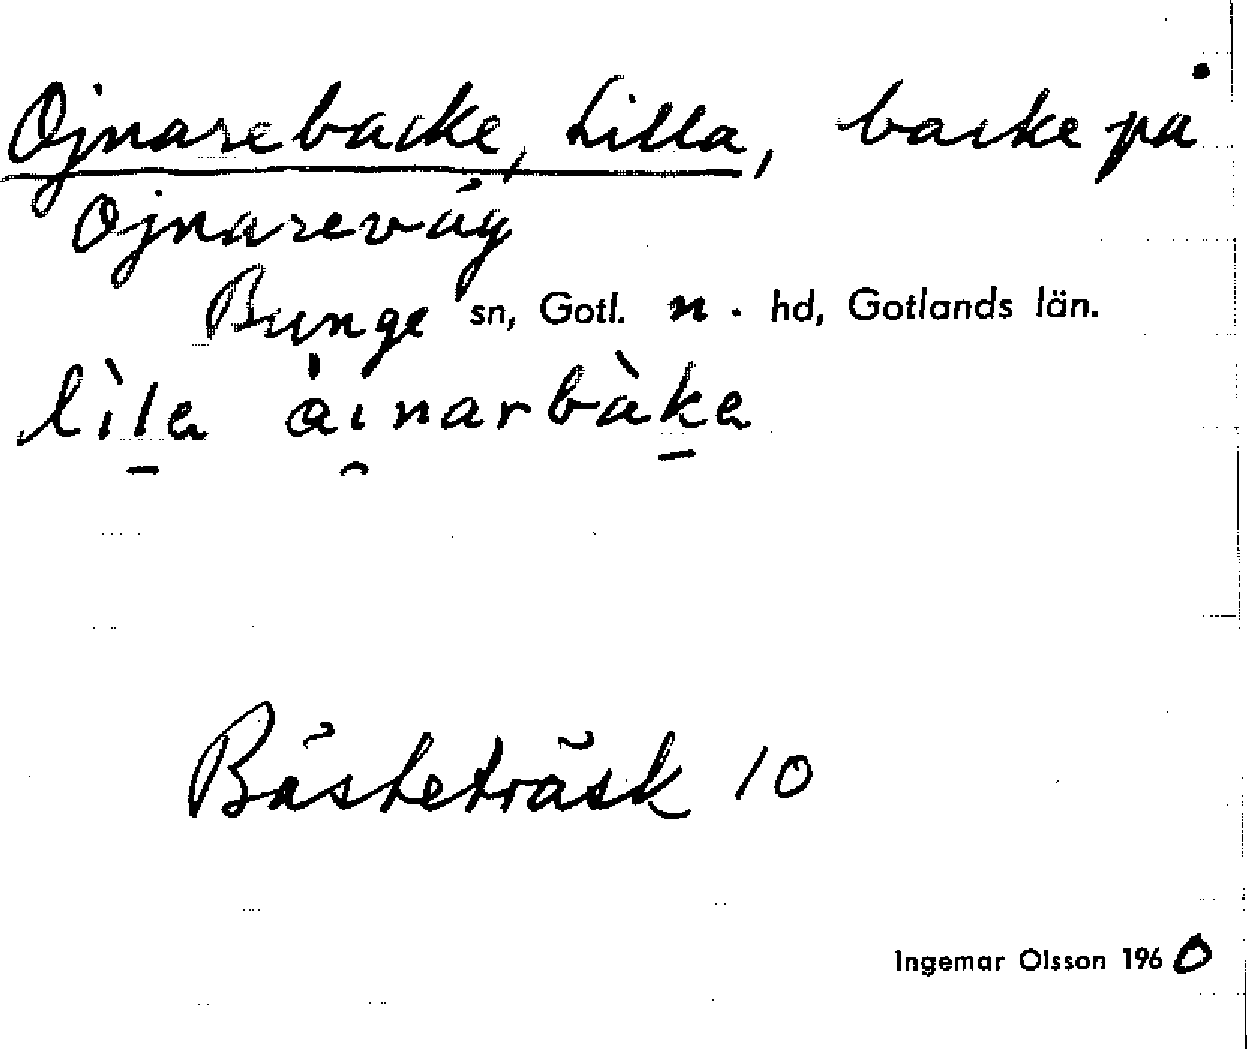 Ojnarebacke, Lilla, backe på
Ojnareväg
Bunge sn, Gotl. n. hd, Gotlands län.
lìla àinarbàka
Bästeträsk 10
Ingemar Olsson 1960